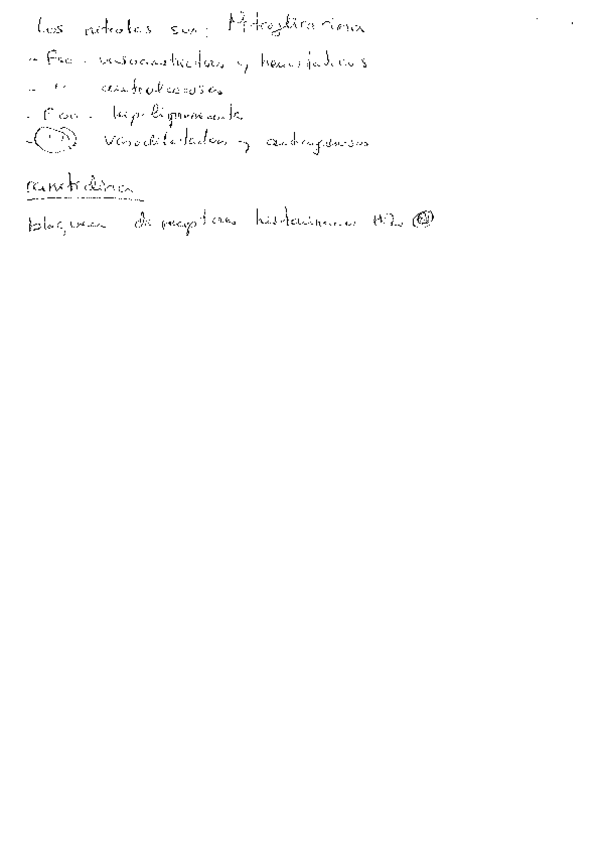 Los nitratos son: Nitroglicerina
- Fco. vasoconstrictores y hemostáticos
- " "
- Fco. hipolipemiante
- " " vasodilatadores y antianginosos
ranitidina
bloquea de receptores histamina H2